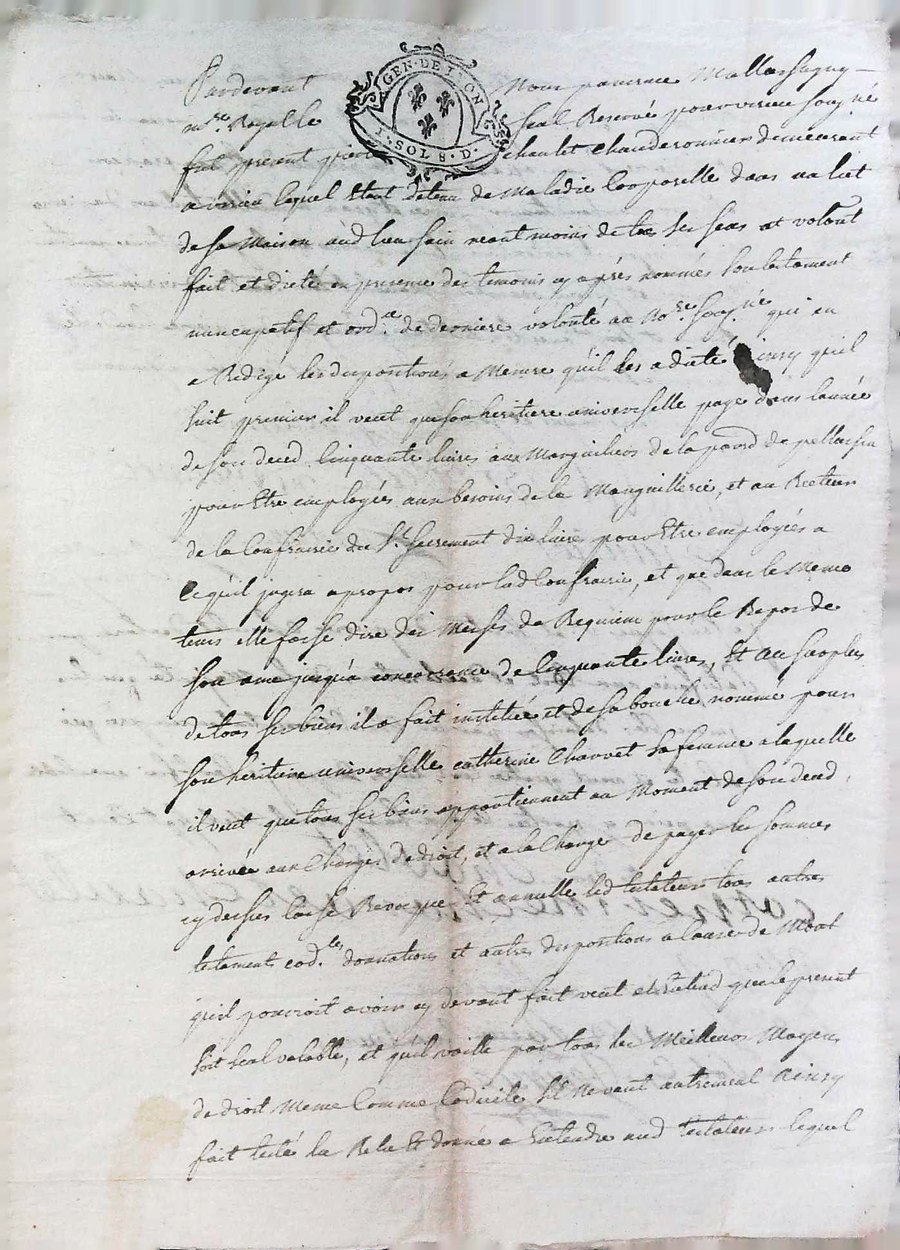 Pardevant Nous
GEN · DE LYON
I · SOL 8 · D ·
n.re Royalle Scel Reservé pour virieu soug.né
fut present pierre chaulet chauderonnier demeurant
a virieu lequel Etant detenu de Maladie Corporelle dans un liet
de sa Maison aud lieu sain neantmoins de tous ses sens at volont
fait et dicté en presence des temoins cy après nommés son testament
nuncupatif et ord.ce de derniere volonté au No.re soug.né qui en
a Redigé les dispositions a Mesure qu'il les a dicté Ainsy qu'il
suit premier il veut que son heritiere universelle paye dans lannée
de son deced Cinquante livres aux Marguilliers de la parr de pellussin
pour Etre employées aux besoins de la Marguillerie, et au Recteur
de la Confrairie du S.t Sacrement dix livres pour Etre employées a
Ce quil jugera apropos pour lad Confrairie, et que dans le Meme
tems elle fasse dire des Messes de Requiem pour le Repos de
son ame jusqu'a concurrance de Cinquante livres, Et au surplus
de tous ses biens il a fait institué et de sa bouche nommé pour
son heritiere universelle catherine Charvet sa femme a laquelle
il veut que tous ses biens appartiennent au Moment de son deced
arrivée aux Charges de droit, et a la Charge de payer les sommes
cy dessus Casse Revoque Et annulle led testateur tous autres
testaments cod.les donnations et autres dispositions a Cause de Mort
qu'il pourroit avoir cy devant fait veut et Entend que le present
soit seul valable, et quil vaille par tous les Meilleurs Moyens
de droit Meme Comme Codicile Sil ne vaut autrement Ainsy
fait testé lu Relu Et donné a Entendre aud testateur lequel